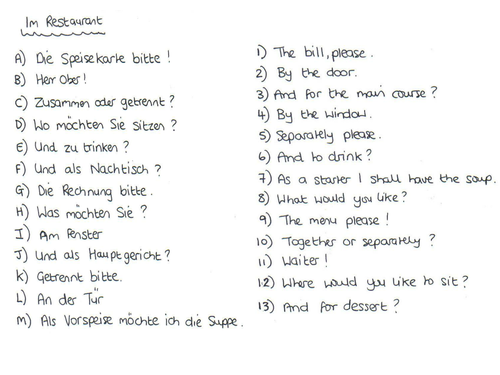 Im Restaurant
A) Die Speisekarte bitte !
B) Herr Ober !
C) Zusammen oder getrennt ?
D) Wo möchten Sie sitzen ?
E) Und zu trinken ?
F) Und als Nachtisch ?
G) Die Rechnung bitte.
H) Was möchten Sie ?
I) Am Fenster
J) Und als Hauptgericht ?
K) Getrennt bitte.
L) An der Tür
M) Als Vorspeise möchte ich die Suppe.
1) The bill, please.
2) By the door.
3) And for the main course ?
4) By the window.
5) Separately please.
6) And to drink ?
7) As a starter I shall have the soup.
8) What would you like ?
9) The menu please !
10) Together or separately ?
11) Waiter !
12) Where would you like to sit ?
13) And for dessert ?